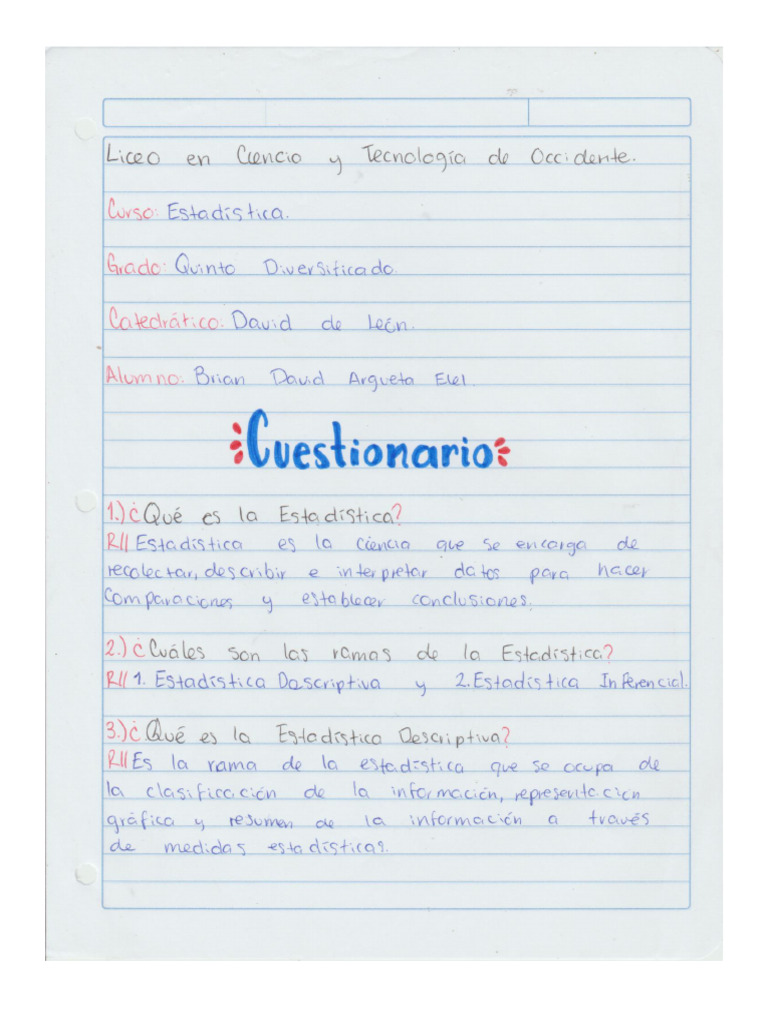 Liceo en Ciencia y Tecnología de Occidente.
Curso: Estadística.
Grado: Quinto Diversificado.
Catedrático: David de León.
Alumno: Brian David Argueta
Cuestionario
1.) ¿Qué es la Estadística?
R// Estadística es la ciencia que se encarga de
recolectar, describir e interpretar datos para hacer
comparaciones y establecer conclusiones.
2.) ¿Cuáles son las ramas de la Estadística?
R// 1. Estadística Descriptiva y 2. Estadística Inferencial.
3.) ¿Qué es la Estadística Descriptiva?
R// Es la rama de la estadística que se ocupa de
la clasificación de la información, representación
gráfica y resumen de la información a través
de medidas estadísticas.